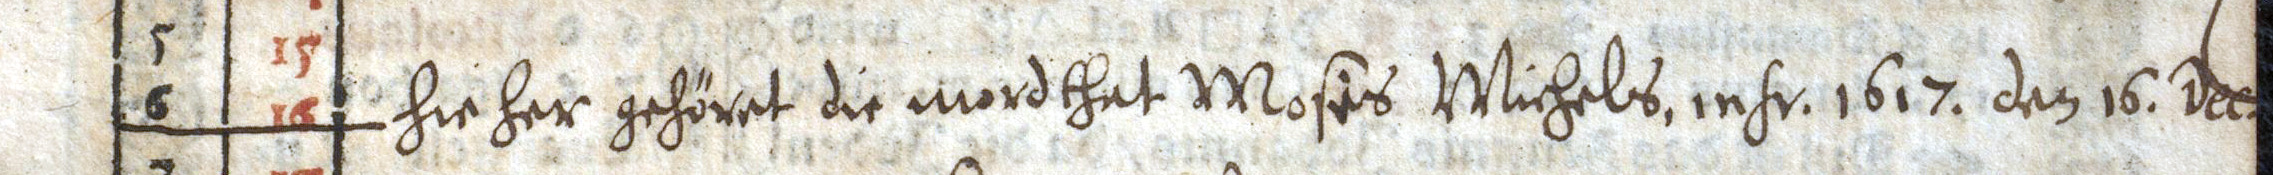 5 15
6 16 hie her gehöret die mordthat Moses Michels, infr. 1617. den 16. Dec.
7 17